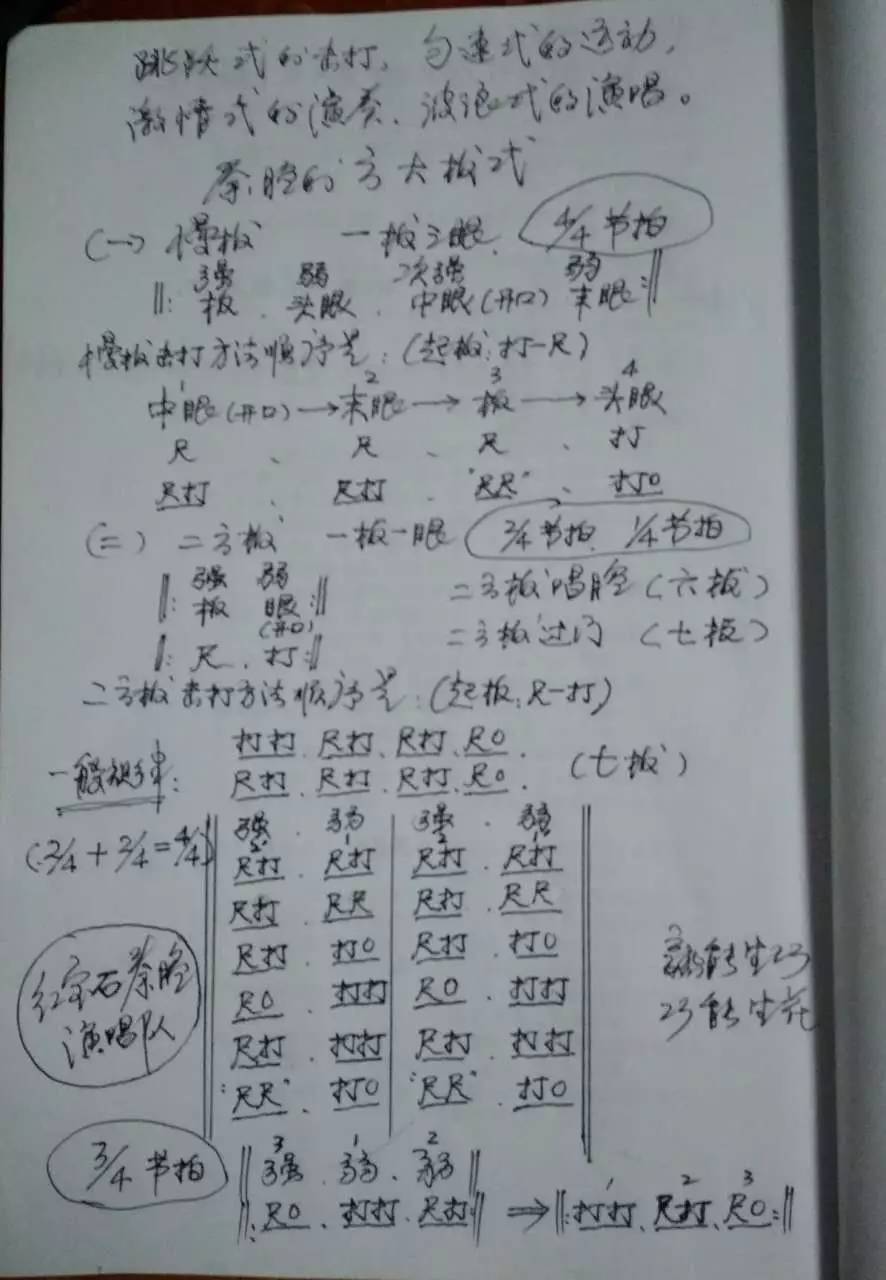 跳跃式的击打,匀速式的运动,
激情式的演奏、波浪式的演唱。
秦腔的六大板式
(一) 慢板 一板三眼. 4/4节拍
强 弱 次强 弱
‖: 板 . 头眼 . 中眼(开口) 末眼 :‖
慢板击打方法顺序是:(起板:打一尺)
1 2 3 4
中眼(开口)→末眼→板→头眼
尺 、 尺 、 尺 、 打
尺打 、 尺打 . "尺尺" 、 打0
(二) 二六板 一板一眼 2/4节拍、1/4节拍
强 弱
‖: 板 眼 :‖ 二六板唱腔(六板)
(开口)
‖: 尺 . 打 :‖ 二六板过门 (七板)
二六板击打方法顺序是:(起板:尺一打)
打打 . 尺打 、 尺打 . 尺0
一般规律: 尺打 . 尺打 . 尺打 . 尺0 . (七板)
强 . 弱 强 . 弱
(2/4+2/4=4/4) 2 1 2 1
尺打 . 尺打 尺打 . 尺打
尺打 . 尺尺 尺打 . 尺尺
尺打 . 打0 尺打 . 打0
红宝石秦腔 尺0 . 打打 尺0 . 打打
演唱队 尺打 . 打打 尺打 . 打打
"尺尺" . 打0 "尺尺" . 打0
熟能生巧
巧能生花
3/4节拍 3 1 2
‖ 强 . 弱 . 弱 ‖
1 2 3
‖: 尺0 . 打打 . 尺打 :‖ ⇒ ‖: 打打 、 尺打 、 尺0 :‖